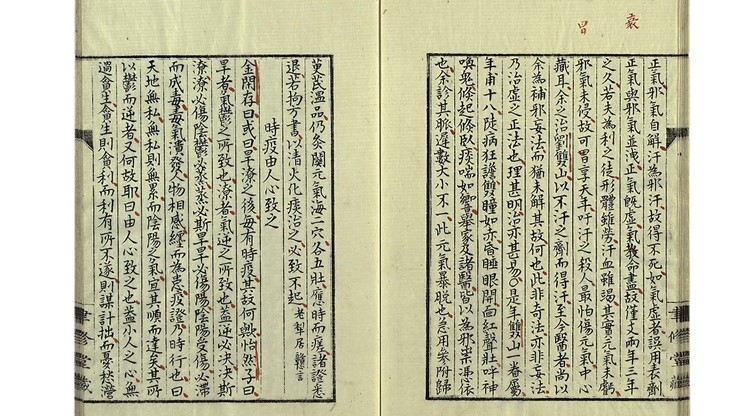 袁
曾
正氣邪氣自解汗為邪汗故得不死如氣虛者誤用表劑
正氣與邪氣並洩正氣旣虛氣敫命盡故僅支兩年三年
之久若夫為利之徒形體雖勞汗血雖竭其實元氣未虧
邪氣未侵故可冒享天年吁汗之殺人最怕傷元氣中心
藏耳余之治劉雙山以不汗之劑而得汗至今醫者尚以
余為補邪妄法而猶未解其故何也此非奇法亦非妄法
乃治虛之正法也理甚明治亦甚易○是年雙山一眷屬
年甫十八陡病狂譫雙瞳如赤昏睡眼開面紅聲壯呼神
喚鬼倏起倏臥痰喘如響舉家及諸醫皆以為邪祟憑依
也余診其脈遲數大小不一此元氣暴脫也急用參附歸
芪茋溫品仍灸關元氣海二穴各五壯應時而痊諸證悉
退若拘方書以清火化痰治之必致不起 老犁居贅言
時疫由人心致之
金閑存曰或曰旱潦之後每有時疫其故何與怡然子曰
旱者氣鬱之所致也潦者氣逆之所致也蓋逆必決決斯
潦潦必傷陰鬱必蒸蒸必斯旱旱必傷陽陰陽受傷必滯
而成毒毒氣潰發人物相感纏而為患疫證乃時行也曰
天地無私無私則無累而陰陽之氣宜其順而達矣其所
以鬱而逆者又何故耶曰由人心致之也蓋小人之心無
過貪生貪生則貪利而利有所不遂則謀計拙而憂愁營
聿修堂藏
聿修堂藏